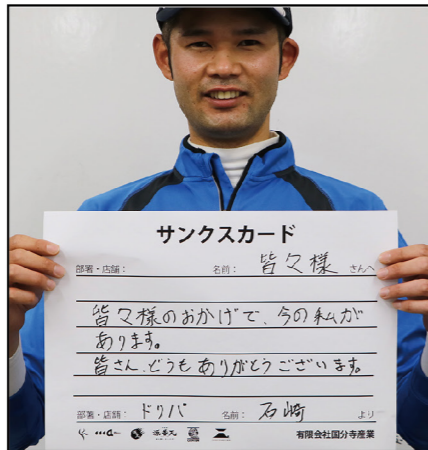 サンクスカード
部署・店舗: 名前: 皆々様 さんへ
皆々様のおかげで、今の私が
あります。
皆さん、どうもありがとうございます。
部署・店舗: ドリバ 名前: 石崎 より
有限会社国分寺産業